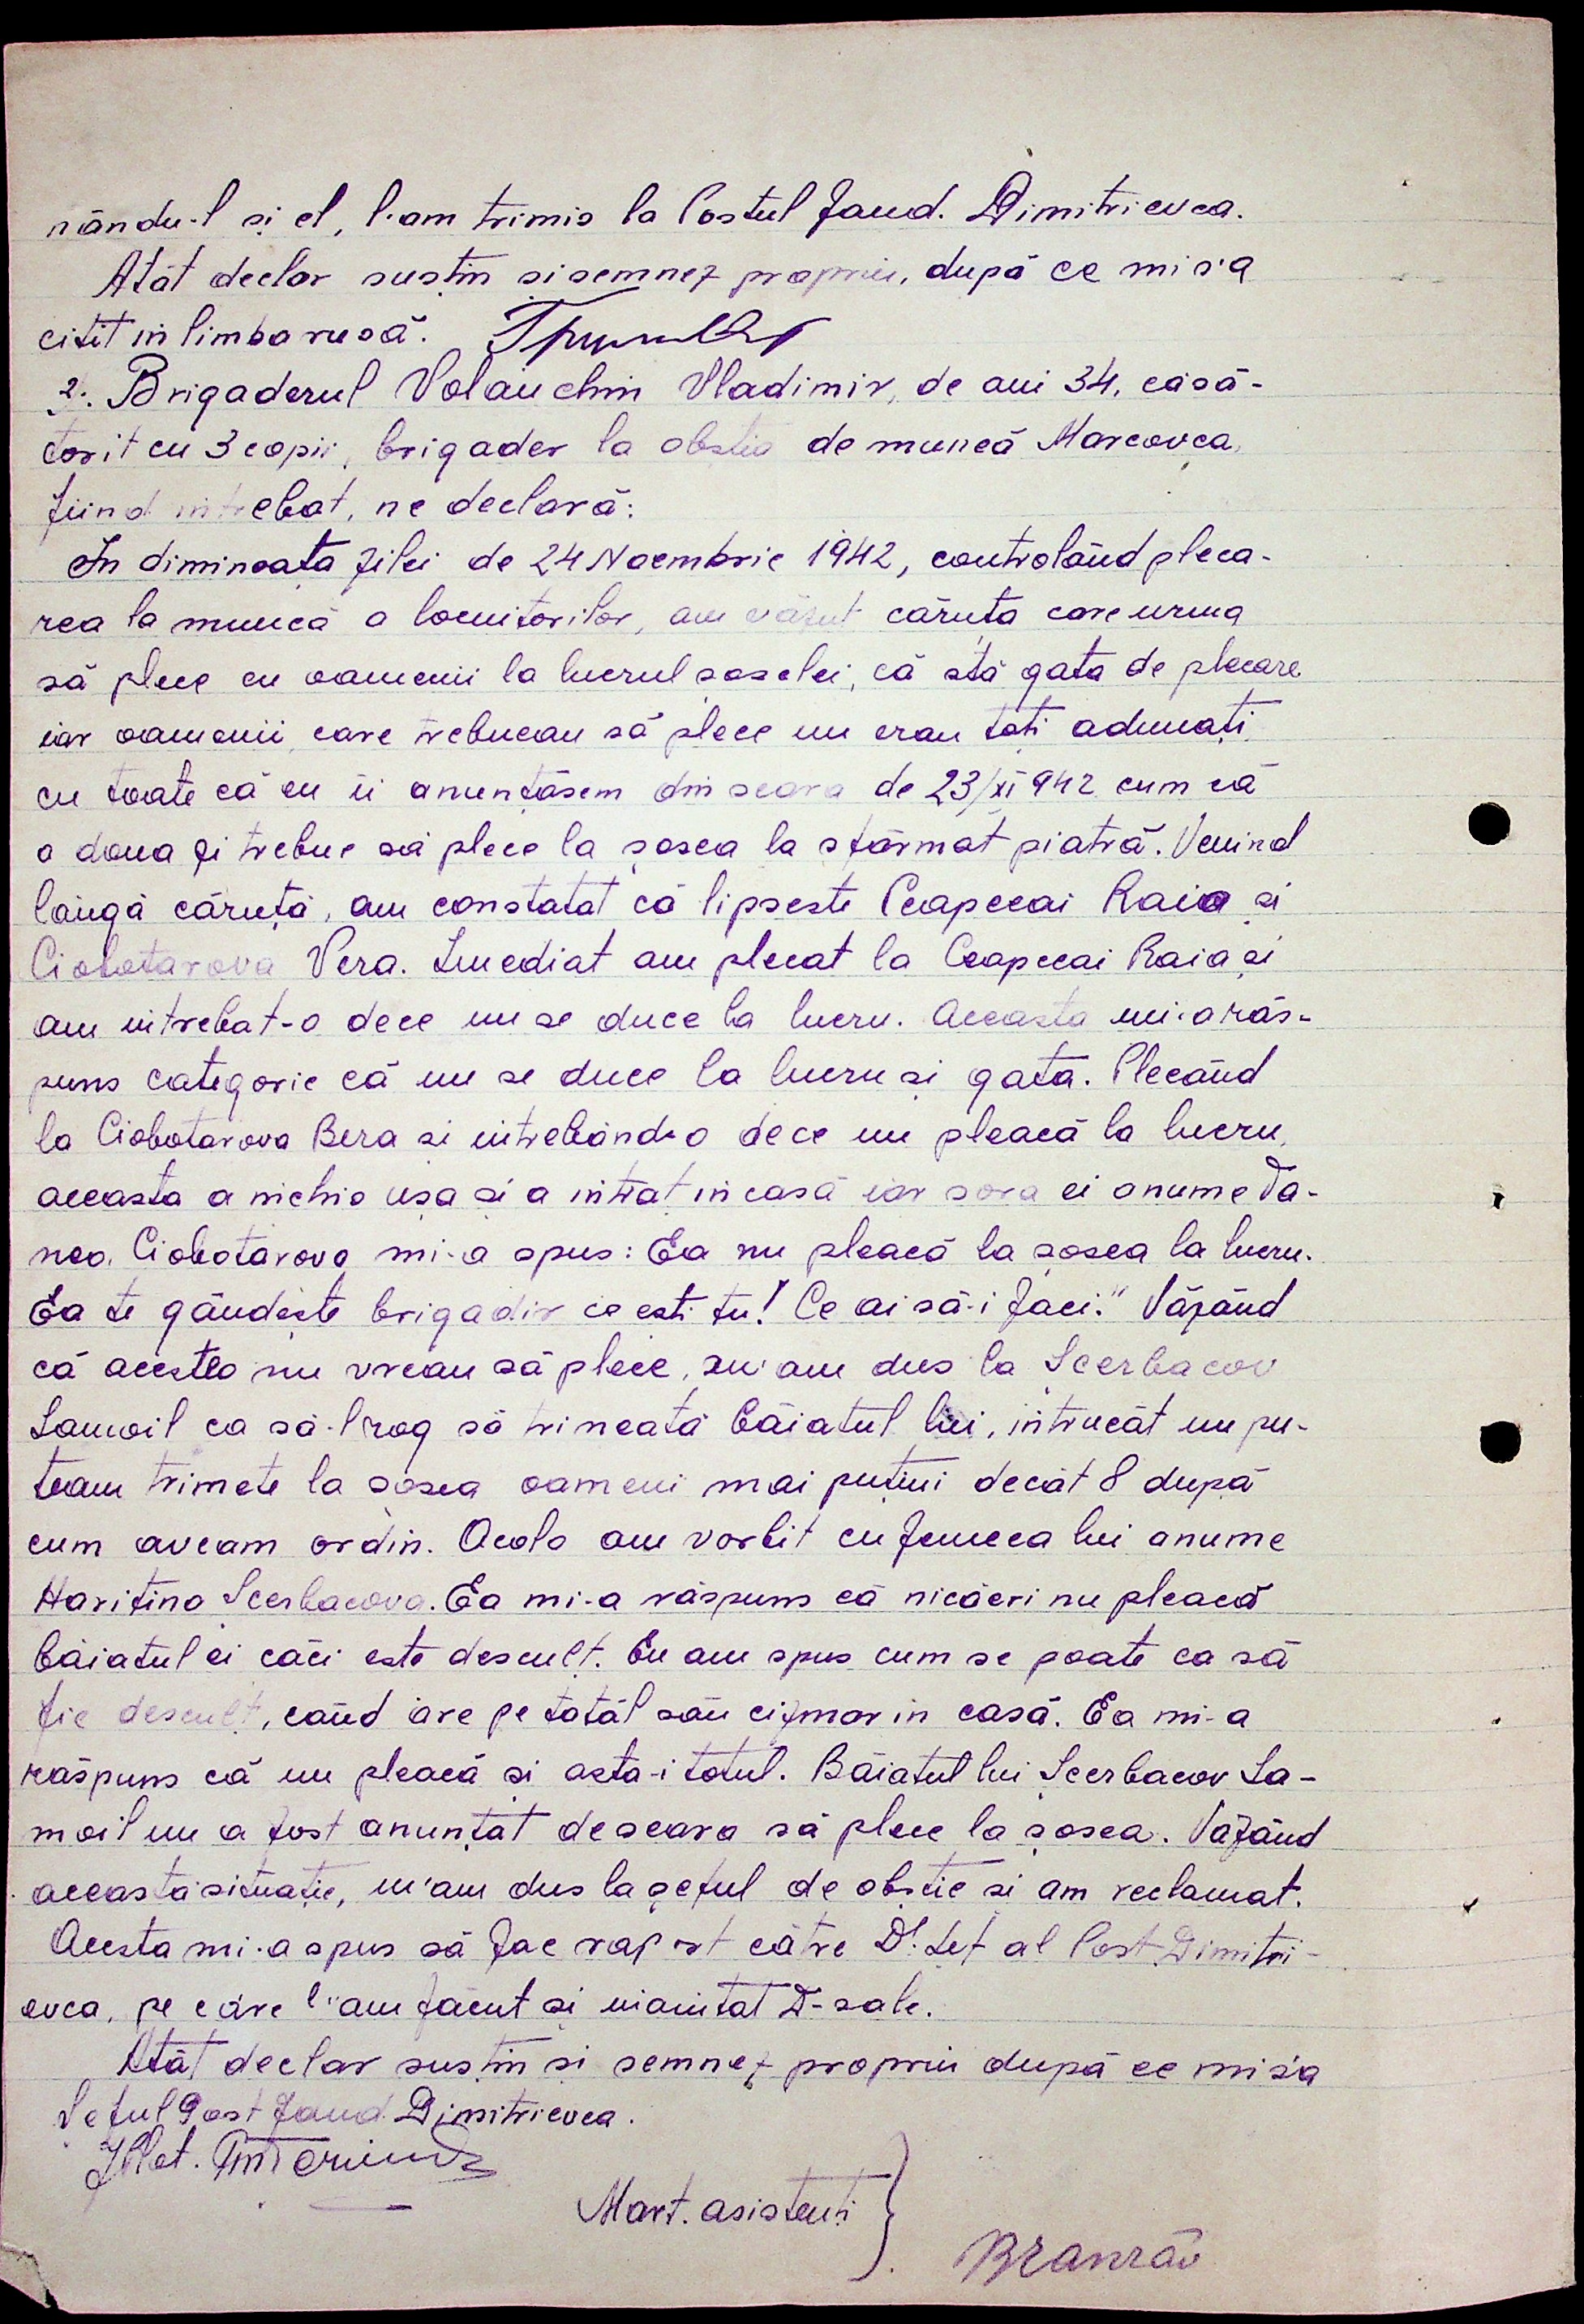 nându-l și el, l-am trimis la Postul Jand. Dimitrievca.
Atât declar susțin și semnez propriu, după ce mi s'a
citit in limba rusă.
2. Brigaderul Volanchin Vladimir, de ani 34, căsă-
torit cu 3 copii, brigader la obștia de muncă Marcovca,
fiind intrebat, ne declară:
In dimineața zilei de 24 Noembrie 1942, controlând pleca-
rea la muncă a locuitorilor, am văzut căruța care urma
să plece cu oamenii la lucrul șoselei, că stă gata de plecare
iar oamenii care trebueau să plece nu erau toți adunați,
cu toate că eu ii anunțasem din seara de 23/XI 942 cum că
a doua zi trebue să plece la șosea la sfărmat piatră. Venind
lângă căruță, am constatat că lipsește Ceapecai Raia și
Ciobotarova Vera. Imediat am plecat la Ceapecai Raia și
am intrebat-o dece nu se duce la lucru. Aceasta mi-a răs-
puns categoric că nu se duce la lucru și gata. Plecând
la Ciobotarova Bera și intrebând-o dece nu pleacă la lucru,
aceasta a inchis ușa și a intrat in casă iar sora ei anume Ta-
nea Ciobotarova mi-a spus: Ea nu pleacă la șosea la lucru.
Ea te gândește brigadir ce ești tu! Ce ai să-i faci." Văzând
că acestea nu vreau să plece, m'am dus la Scerbacov
Samoil ca să-l rog să trimeată băiatul lui, intrucât nu pu-
team trimete la șosea oameni mai puțini decât 8 după
cum aveam ordin. Acolo am vorbit cu femeea lui anume
Haritina Scerbacova. Ea mi-a răspuns că nicăeri nu pleacă
băiatul ei căci este descult. Eu am spus cum se poate ca să
fie descult, când are pe tatăl său cizmar in casă. Ea mi-a
răspuns că nu pleacă și asta-i totul. Băiatul lui Scerbacov Sa-
moil nu a fost anunțat deseara să plece la șosea. Văzând
aceasta situație, m'am dus la șeful de obștie și am reclamat.
Acesta mi-a spus să fac raport către Dl. Șef al Post Dimitri-
evca, pe care l-am făcut și inaintat D-sale.
Atât declar susțin și semnez propriu după ce mi s'a
Șeful Post Jand. Dimitrievca.
Mart. asistenti